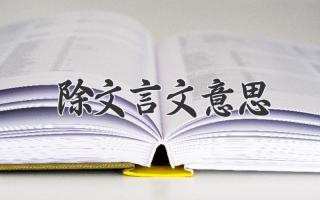 除文言文意思